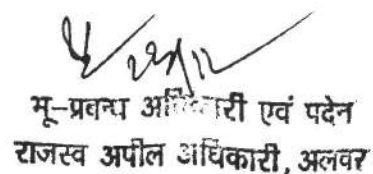 भू-प्रबन्ध अधिकारी एवं पदेन
राजस्व अपील अधिकारी, अलवर